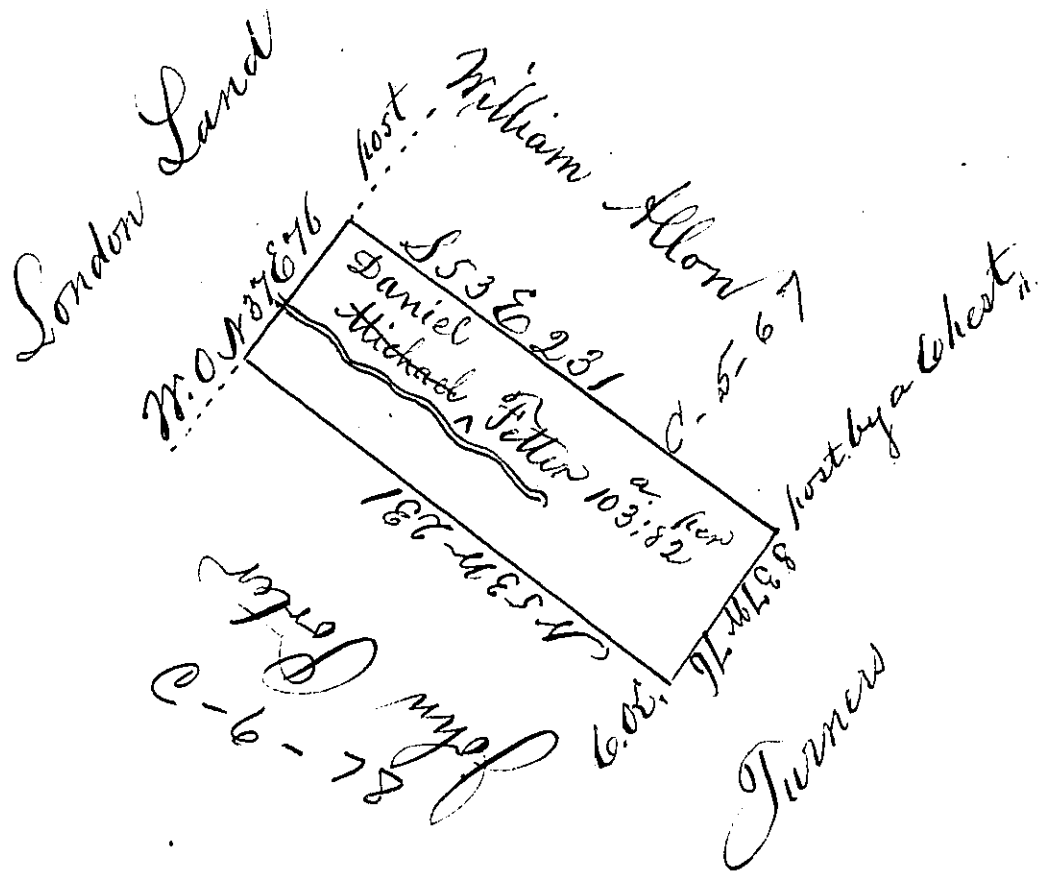 London Land
post
William Allon
C-5-67
W.O. N37E76
S53E231
Daniel
Michael Fetter
a. per
103;82
post by a Chest.n.
S37W76
N53W231
C.O.
John Porter
C-9-78
Turners